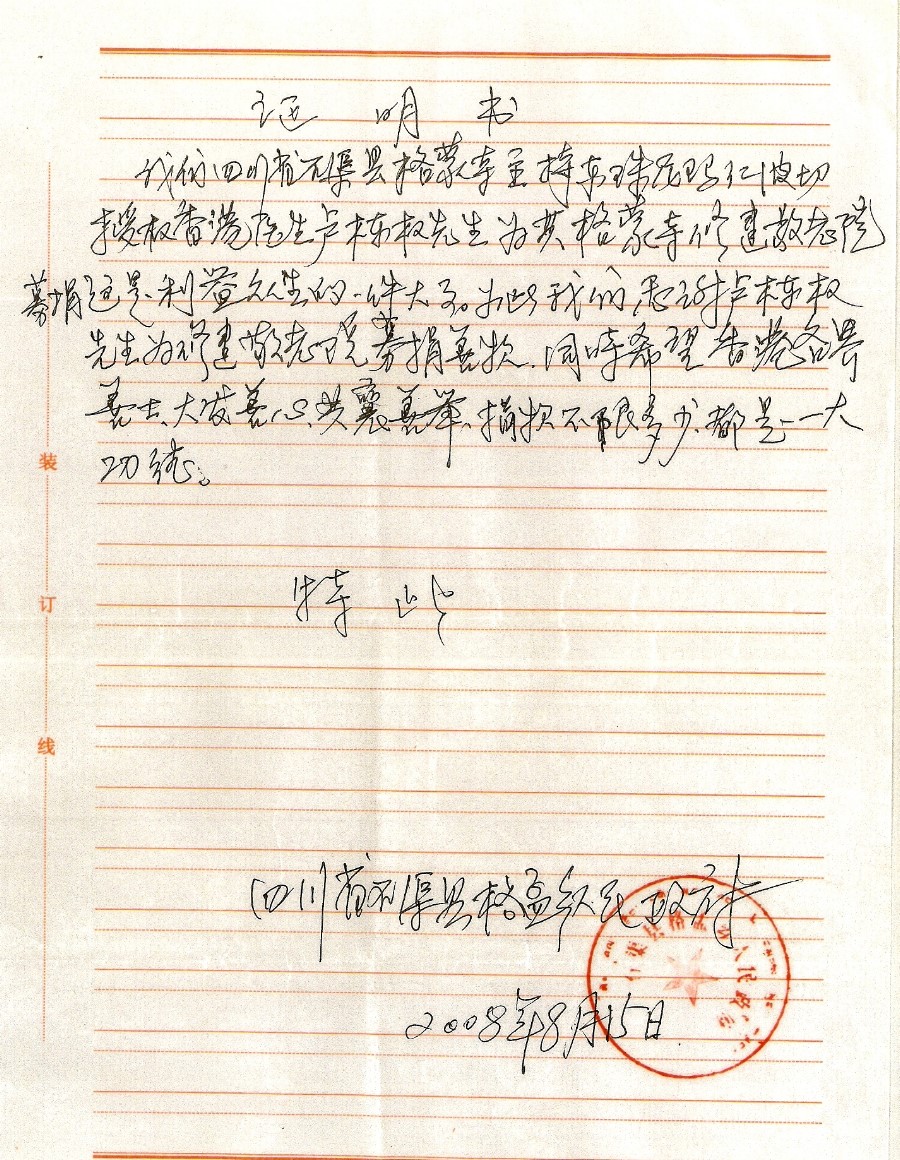 证明书
我们四川省石渠县格蒙寺主持东珠尼玛仁波切
授权香港医生卢栋权先生为其格蒙寺修建敬老院
募捐这是利益众生的一件大事。为此我们恳请卢栋权
先生为修建敬老院募捐善款、同时希望香港各界
善士、大发善心、共襄善举、捐款不限多少、都是一大
功德。
特此
四川省石渠县格孟乡人民政府
2008年8月15日
渠县格孟乡人民政府
装
订
线